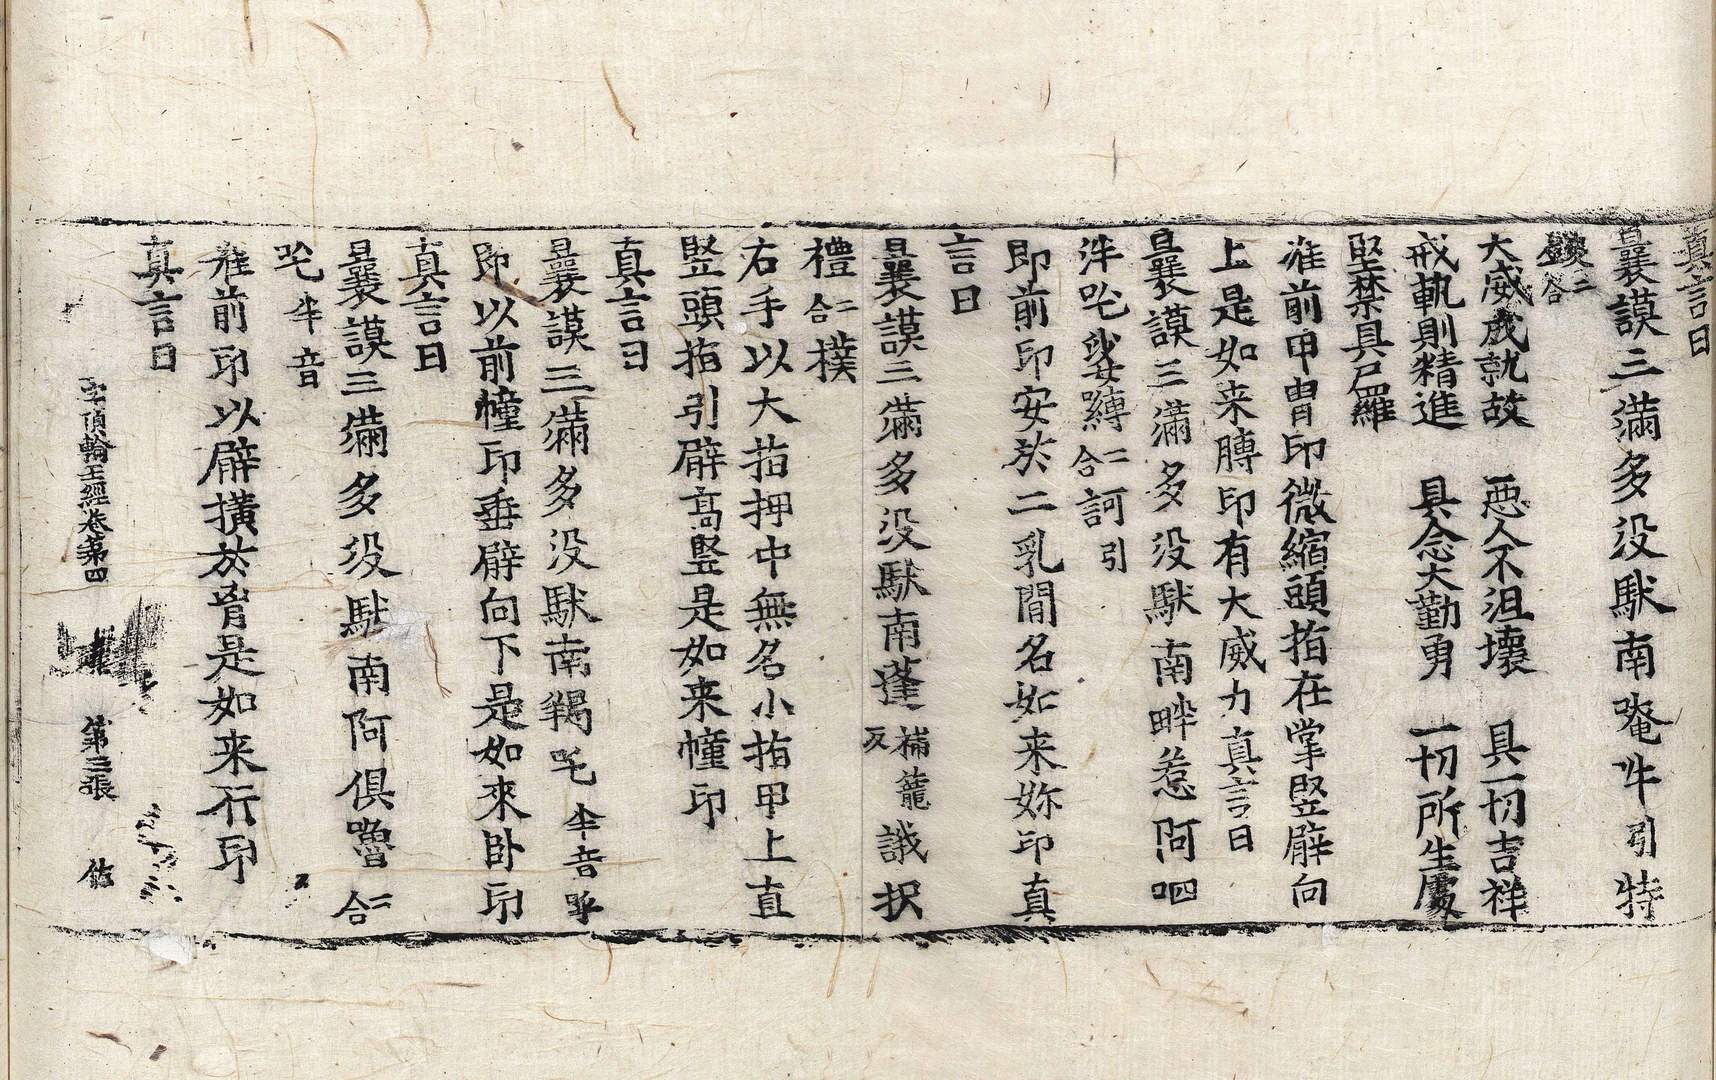 真言曰
曩謨三滿多没馱南唵吽引特
大威成就故　惡人不沮壞　具一切吉祥
戒軌則精進　具念大勤勇　一切所生處
堅禁具尸羅
准前甲冑印微縮頭指在掌竪臂向
上是如来膊印有大威力真言曰
曩謨三滿多没馱南畔惹阿呬
泮吒 嚩二合訶引
即前印安於二乳間名如来妳印真
言曰
曩謨三滿多没馱南蓬補籠反誐択
禮二合撲
右手以大指押中無名小指甲上直
竪頭指引臂高竪是如来幢印
真言曰
曩謨三滿多没馱南羯吒半音
即以前幢印垂臂向下是如來卧印
真言曰
曩謨三滿多没馱南阿俱嚕二合
吒半音
准前印以臂横於胷是如来行印
真言曰
字頂輪王經卷第四　第三張